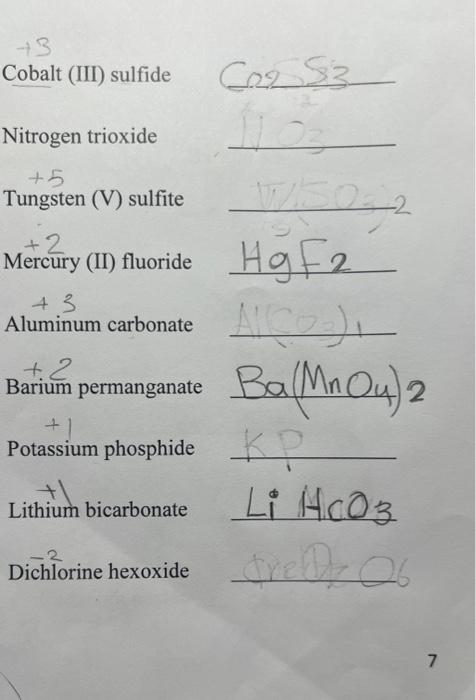 +3
Cobalt (III) sulfide Co2 S3
Nitrogen trioxide NO3
+5
Tungsten (V) sulfite
+2
Mercury (II) fluoride HgF2
+3
Aluminum carbonate
+2
Barium permanganate Ba(MnO4)2
+1
Potassium phosphide KP
+1
Lithium bicarbonate Li HCO3
-2
Dichlorine hexoxide O6
7